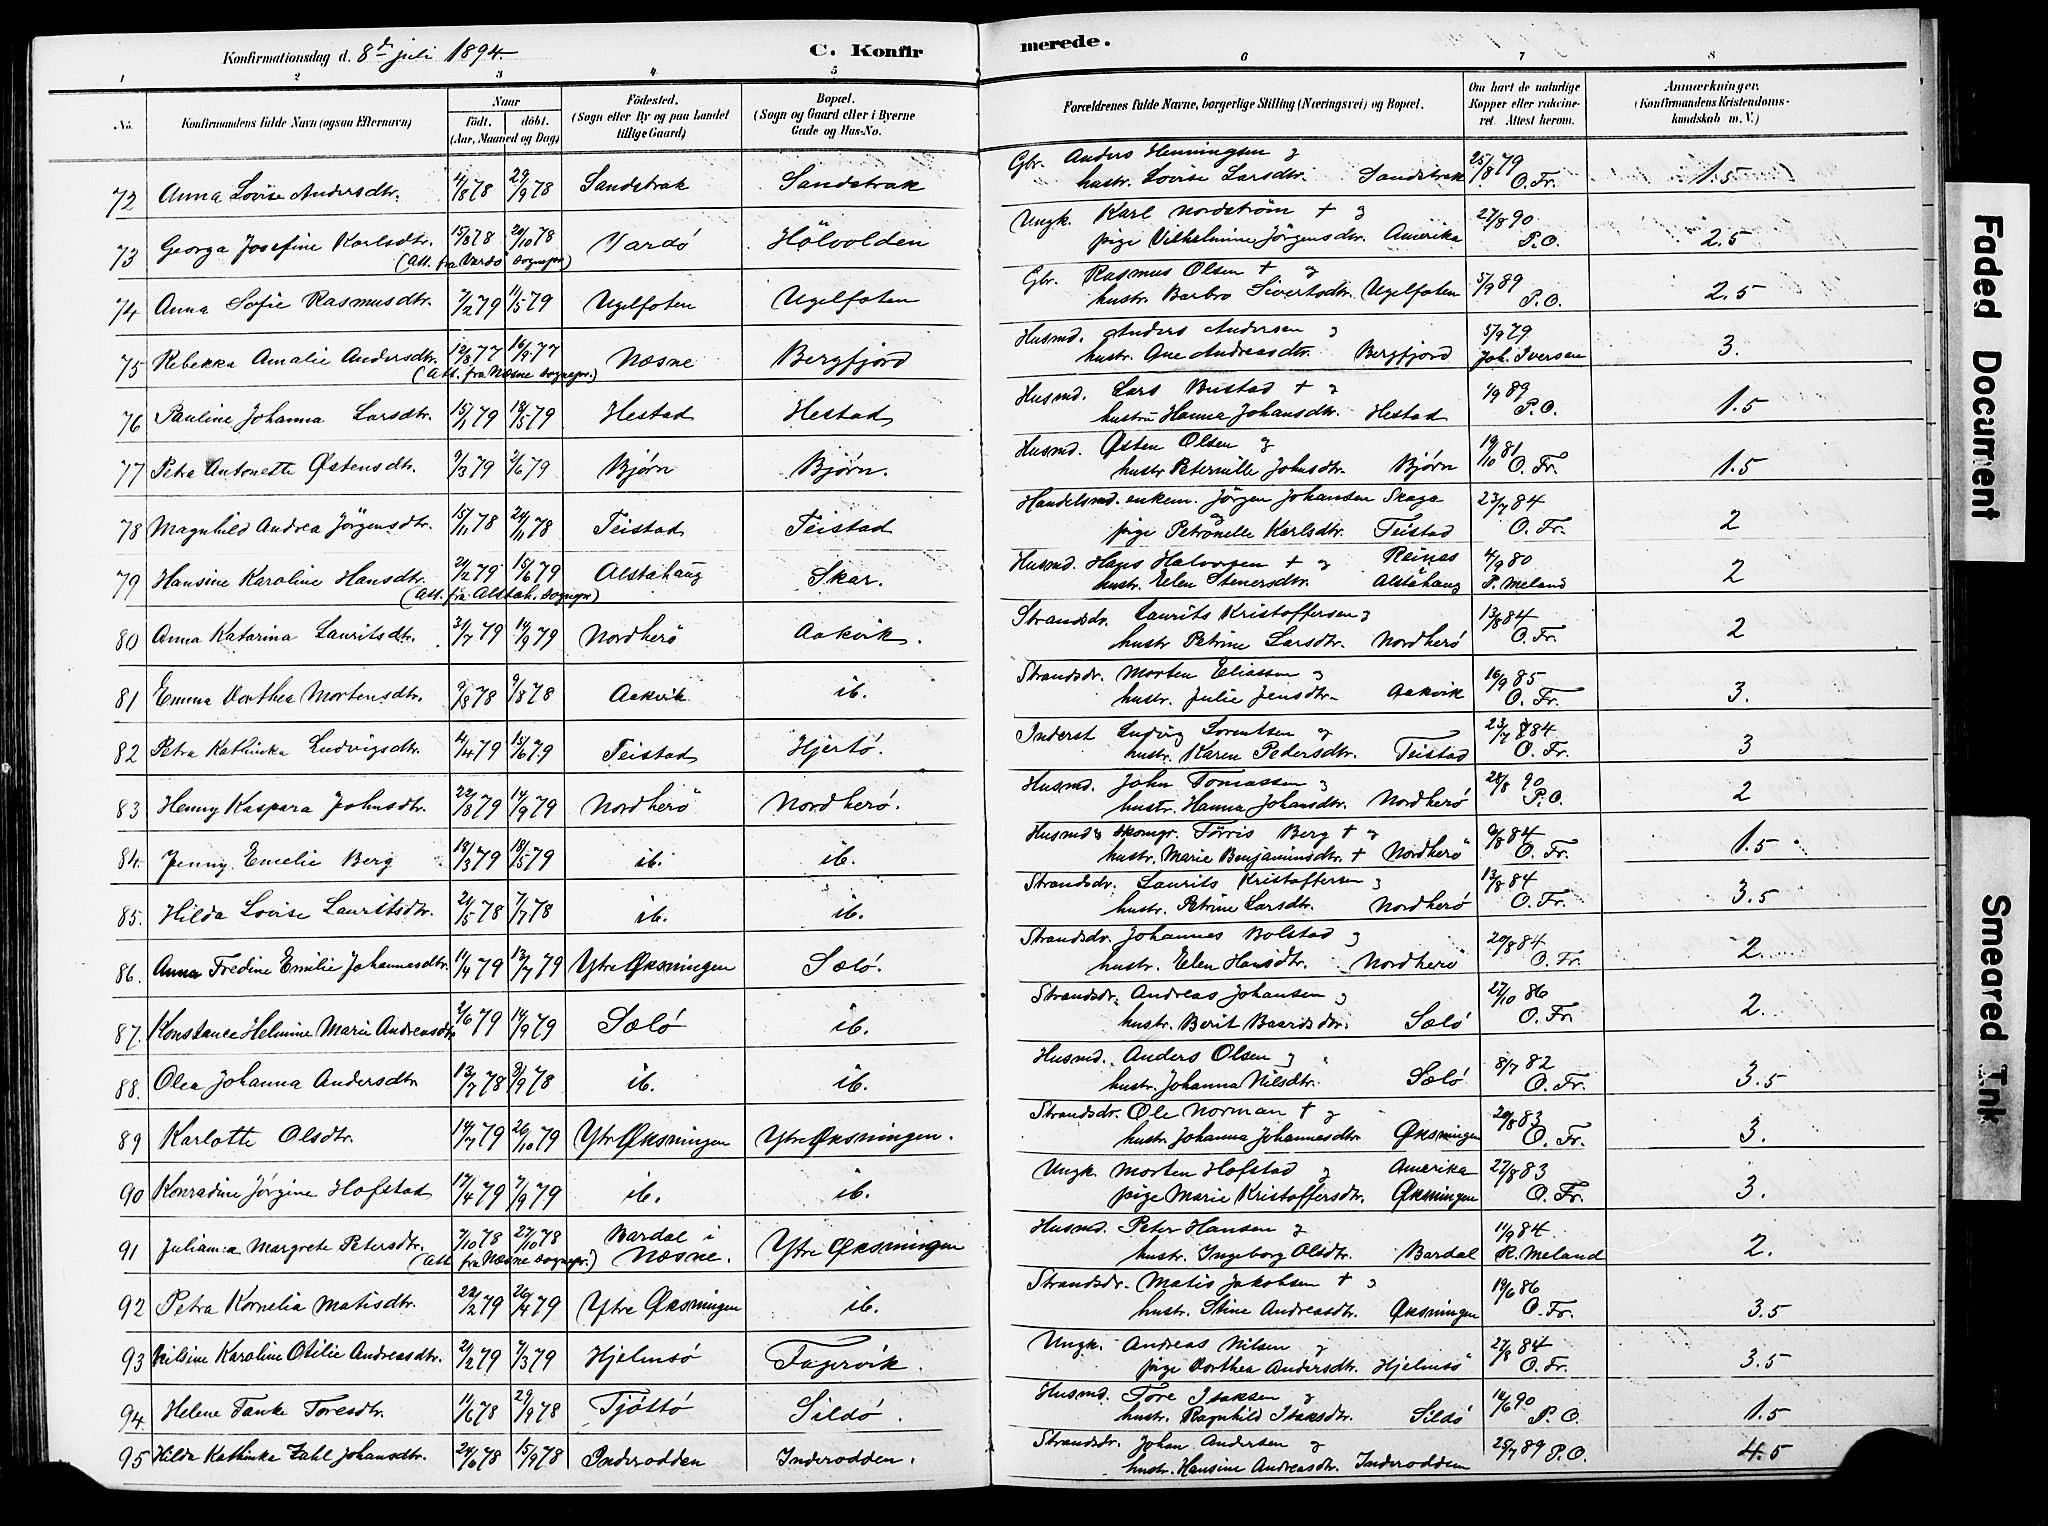 Konfirmationsdag d. 8de juli 1894.
C. Konfirmerede.
1 2 3 4 5 6 7 8
No. Konfirmandens fulde Navn (ogsaa Efternavn) Naar født. døbt. (Aar, Maaned og Dag) Fødested. (Sogn eller By og paa Landet tillige Gaard) Bopæl. (Sogn og Gaard eller i Byerne Gade og Hus-No. Forældrenes fulde Navne, borgerlige Stilling (Næringsvei) og Bopæl. Om havt de naturlige Kopper eller vakcineret. Attest herom. Anmærkninger. (Konfirmandens Kristendomskundskab m. V.)
72 Anna Lovise Andersdtr. 4/8 78 29/9 78 Sandstrak Sandstrak Gbr. Anders Henningsen og 25/8 79 1.5
hustr. Lovise Larsdtr. Sandstrak O. Fr.
73 Georga Josefine Karlsdtr. 15/8 78 20/10 78 Vardö Hölvolden Ungk. Karl Nordström + og 27/8 90 2.5
(Att. fra Vardö sognepr.) pige Vilhelmine Jörgensdtr. Amerika P.O.
74 Anna Sofie Rasmusdtr. 7/2 79 11/5 79 Ugelfoten Ugelfoten Gbr. Rasmus Olsen + og 5/9 89 2.5
hustr. Barbro Sivertsdtr. Ugelfoten P.O.
75 Rebekka Amalie Andersdtr. 12/8 77 16/9 77 Næsne Bergfjord Husmd. Anders Andersen og 5/9 79 3.
(Att. fra Næsne sognepr.) hustr. Ane Andreasdtr. Bergfjord Joh. Iversen
76 Pauline Johanna Larsdtr. 15/1 79 18/5 79 Hestad Hestad Husmd. Lars Bustad + og 1/9 89 1.5
hustru Hanna Johansdtr. Hestad P.O.
77 Petra Antonette Østensdtr. 9/3 79 2/6 79 Bjørn Bjørn. Husmd. Østen Olsen og 19/10 81 1.5
hustr. Peternille Johnsdtr. Bjørn O. Fr.
78 Magnhild Andrea Jörgensdtr. 15/11 78 24/11 78 Teistad Teistad Handelsmd. enkem. Jörgen Johansen Skaga 23/7 84 2
og pige Petronelle Karlsdtr. Teistad O. Fr.
79 Hansine Karoline Hansdtr. 21/2 79 15/6 79 Alstahaug Skar. Husmd. Hans Halvorsen + og Reinas 4/9 80 2
(Att. fra Alstah. sognepr) hustr. Elen Stenersdtr. Alstahaug P. Meland
80 Anna Katarina Lauritsdtr. 31/7 79 14/9 79 Nordherö Aakvik. Strandsdr. Laurits Kristoffersen og 13/8 84 2
hustr. Petrine Larsdtr. Nordherö O. Fr.
81 Emma Dorthea Mortensdtr. 9/3 78 9/8 78 Aakvik ib. Strandsdr. Morten Eliassen og 16/9 85 3.
hustr. Julie Jensdtr. Aakvik O. Fr.
82 Petra Kathinka Ludvigsdtr. 4/4 79 15/6 79 Teistad Hjertö. Inderst Ludvig Lorentsen og 23/7 84 3
hustr. Karen Pedersdtr. Teistad O. Fr.
83 Henny Kaspara Johnsdtr. 22/8 79 14/9 79 Nordherö Nordherö. Husmd. John Tomassen og 28/8 90 2
hustr. Hanna Johansdtr. Nordherö P.O.
84. Jenny Emelie Berg 18/3 79 18/5 79 ib. ib. Husmd. og skomgr. Törris Berg + og 9/8 84 1.5
hustr. Marie Benjaminsdtr. + Nordherö O. Fr.
85. Hilda Lovise Lauritsdtr. 21/5 78 7/7 78 ib. ib. Strandsdr. Laurits Kristoffersen og 13/8 84 3.5
hustr. Petrine Larsdtr. Nordherö O. Fr.
86. Anna Fredine Emilie Johannesdtr. 11/4 79 13/7 79 Ytre Øksningen Sælö. Strandsdr. Johannes Bolstad og 20/8 84 2.
hustr. Elen Hansdtr. Nordherö O. Fr.
87. Konstance Helmine Marie Andreasdtr. 2/6 79 14/9 79 Sælö ib. Strandsdr. Andreas Johansen og 27/10 86 2.
hustr. Berit Baardsdtr. Sælö O. Fr.
88. Olea Johanna Andersdtr 13/7 78 9/9 78 ib. ib. Husmd. Anders Olsen og 8/7 82 3.5
hustr. Johanna Nilsdtr. Sælö O. Fr.
89 Karlotte Olsdtr. 14/7 79 26/10 79 Ytre Øksningen Ytre Øksningen. Strandsdr. Ole Norman + og 20/8 83 3.
hustr. Johanna Johannesdtr. Øksningen O. Fr.
90 Konradine Jörgine Hofstad 17/4 79 7/9 79 ib. ib. Ungk. Morten Hofstad og Amerika 27/8 83 3.
pige Marie Kristoffersdtr. Øksningen O. Fr.
91 Julianna Margrete Petersdtr. 7/10 78 27/10 78 Bardal i Næsne. Ytre Øksningen Husmd. Peter Hansen og 11/9 84 2.
(Att. fra Næsne sognepr.) hustr. Ingeborg Olsdtr. Bardal R. Meland
92 Petra Kornelia Matisdtr. 22/2 79 26/4 79 Ytre Øksningen ib. Strandsdr. Matis Jakobsen + og 19/6 86 3.5
hustr. Stine Andreasdtr. Øksningen O. Fr.
93 Nilsine Karoline Otilie Andreasdtr. 21/2 79 7/3 79 Hjelmsö Fagervik. Ungk. Andreas Nilsen og 27/8 84 3.5
pige Dorthea Andersdtr. Hjelmsö O. Fr.
94. Helene Tanke Toresdtr. 11/6 78 29/9 78 Tjöttö Sildö. Husmd. Tore Isaksen og 14/6 90 1.5
hustr. Ragnhild Isaksdtr. Sildö P.O.
95 Hilda Kathinka Zahl Johansdtr. 24/6 78 15/9 78 Inderodden Inderodden. Strandsdr. Johan Andersen og 25/7 89 P.O. 4.5
hustr. Hansine Andreasdtr. Inderodden
Faded Document
Smeared Ink